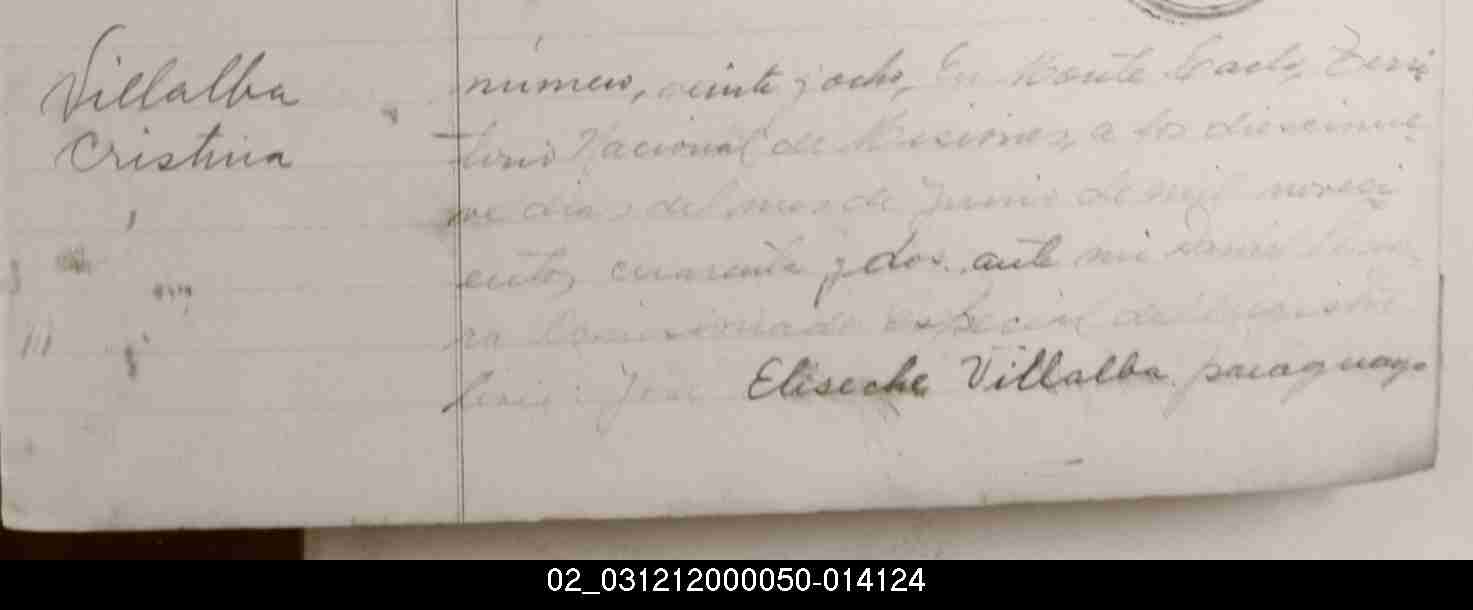 Villalba
Cristina
número, veinte y ocho, En Monte Carlo, Terri
torio Nacional de Misiones, a los diecinue
ve dias del mes de Junio de mil noveci
entos cuarenta y dos, ante mi
Comisionado especial del
José Eliseche Villalba, paraguay
02_031212000050-014124